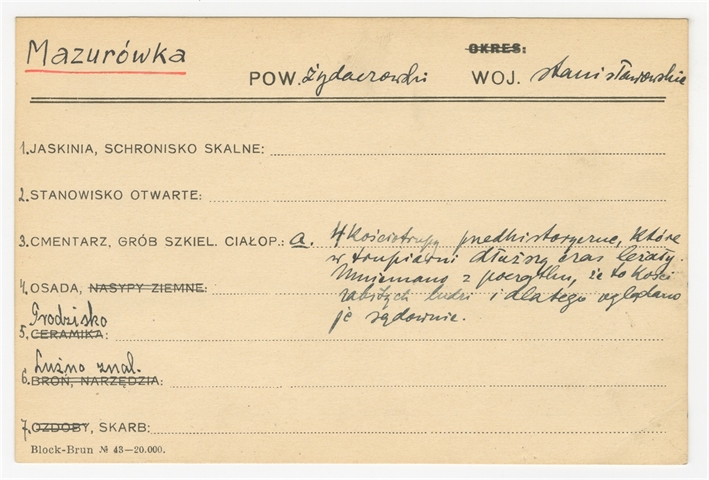 Mazurówka
OKRES:
POW. żydaczowski WOJ. stanisławowskie
1. JASKINIA, SCHRONISKO SKALNE:
2. STANOWISKO OTWARTE:
3. CMENTARZ, GRÓB SZKIEL. CIAŁOP.: a. 4 Kościotrupy przedhistoryczne, które
w trupiarni dłuższy czas leżały.
4. OSADA, NASYPY ZIEMNE: Mniemano z początku, że to kości
zabitych ludzi i dlatego oglądano
Grodzisko
5. CERAMIKA: je sądownie.
Luźno znal.
6. BROŃ, NARZĘDZIA:
7. OZDOBY, SKARB:
Block-Brun № 43—20.000.